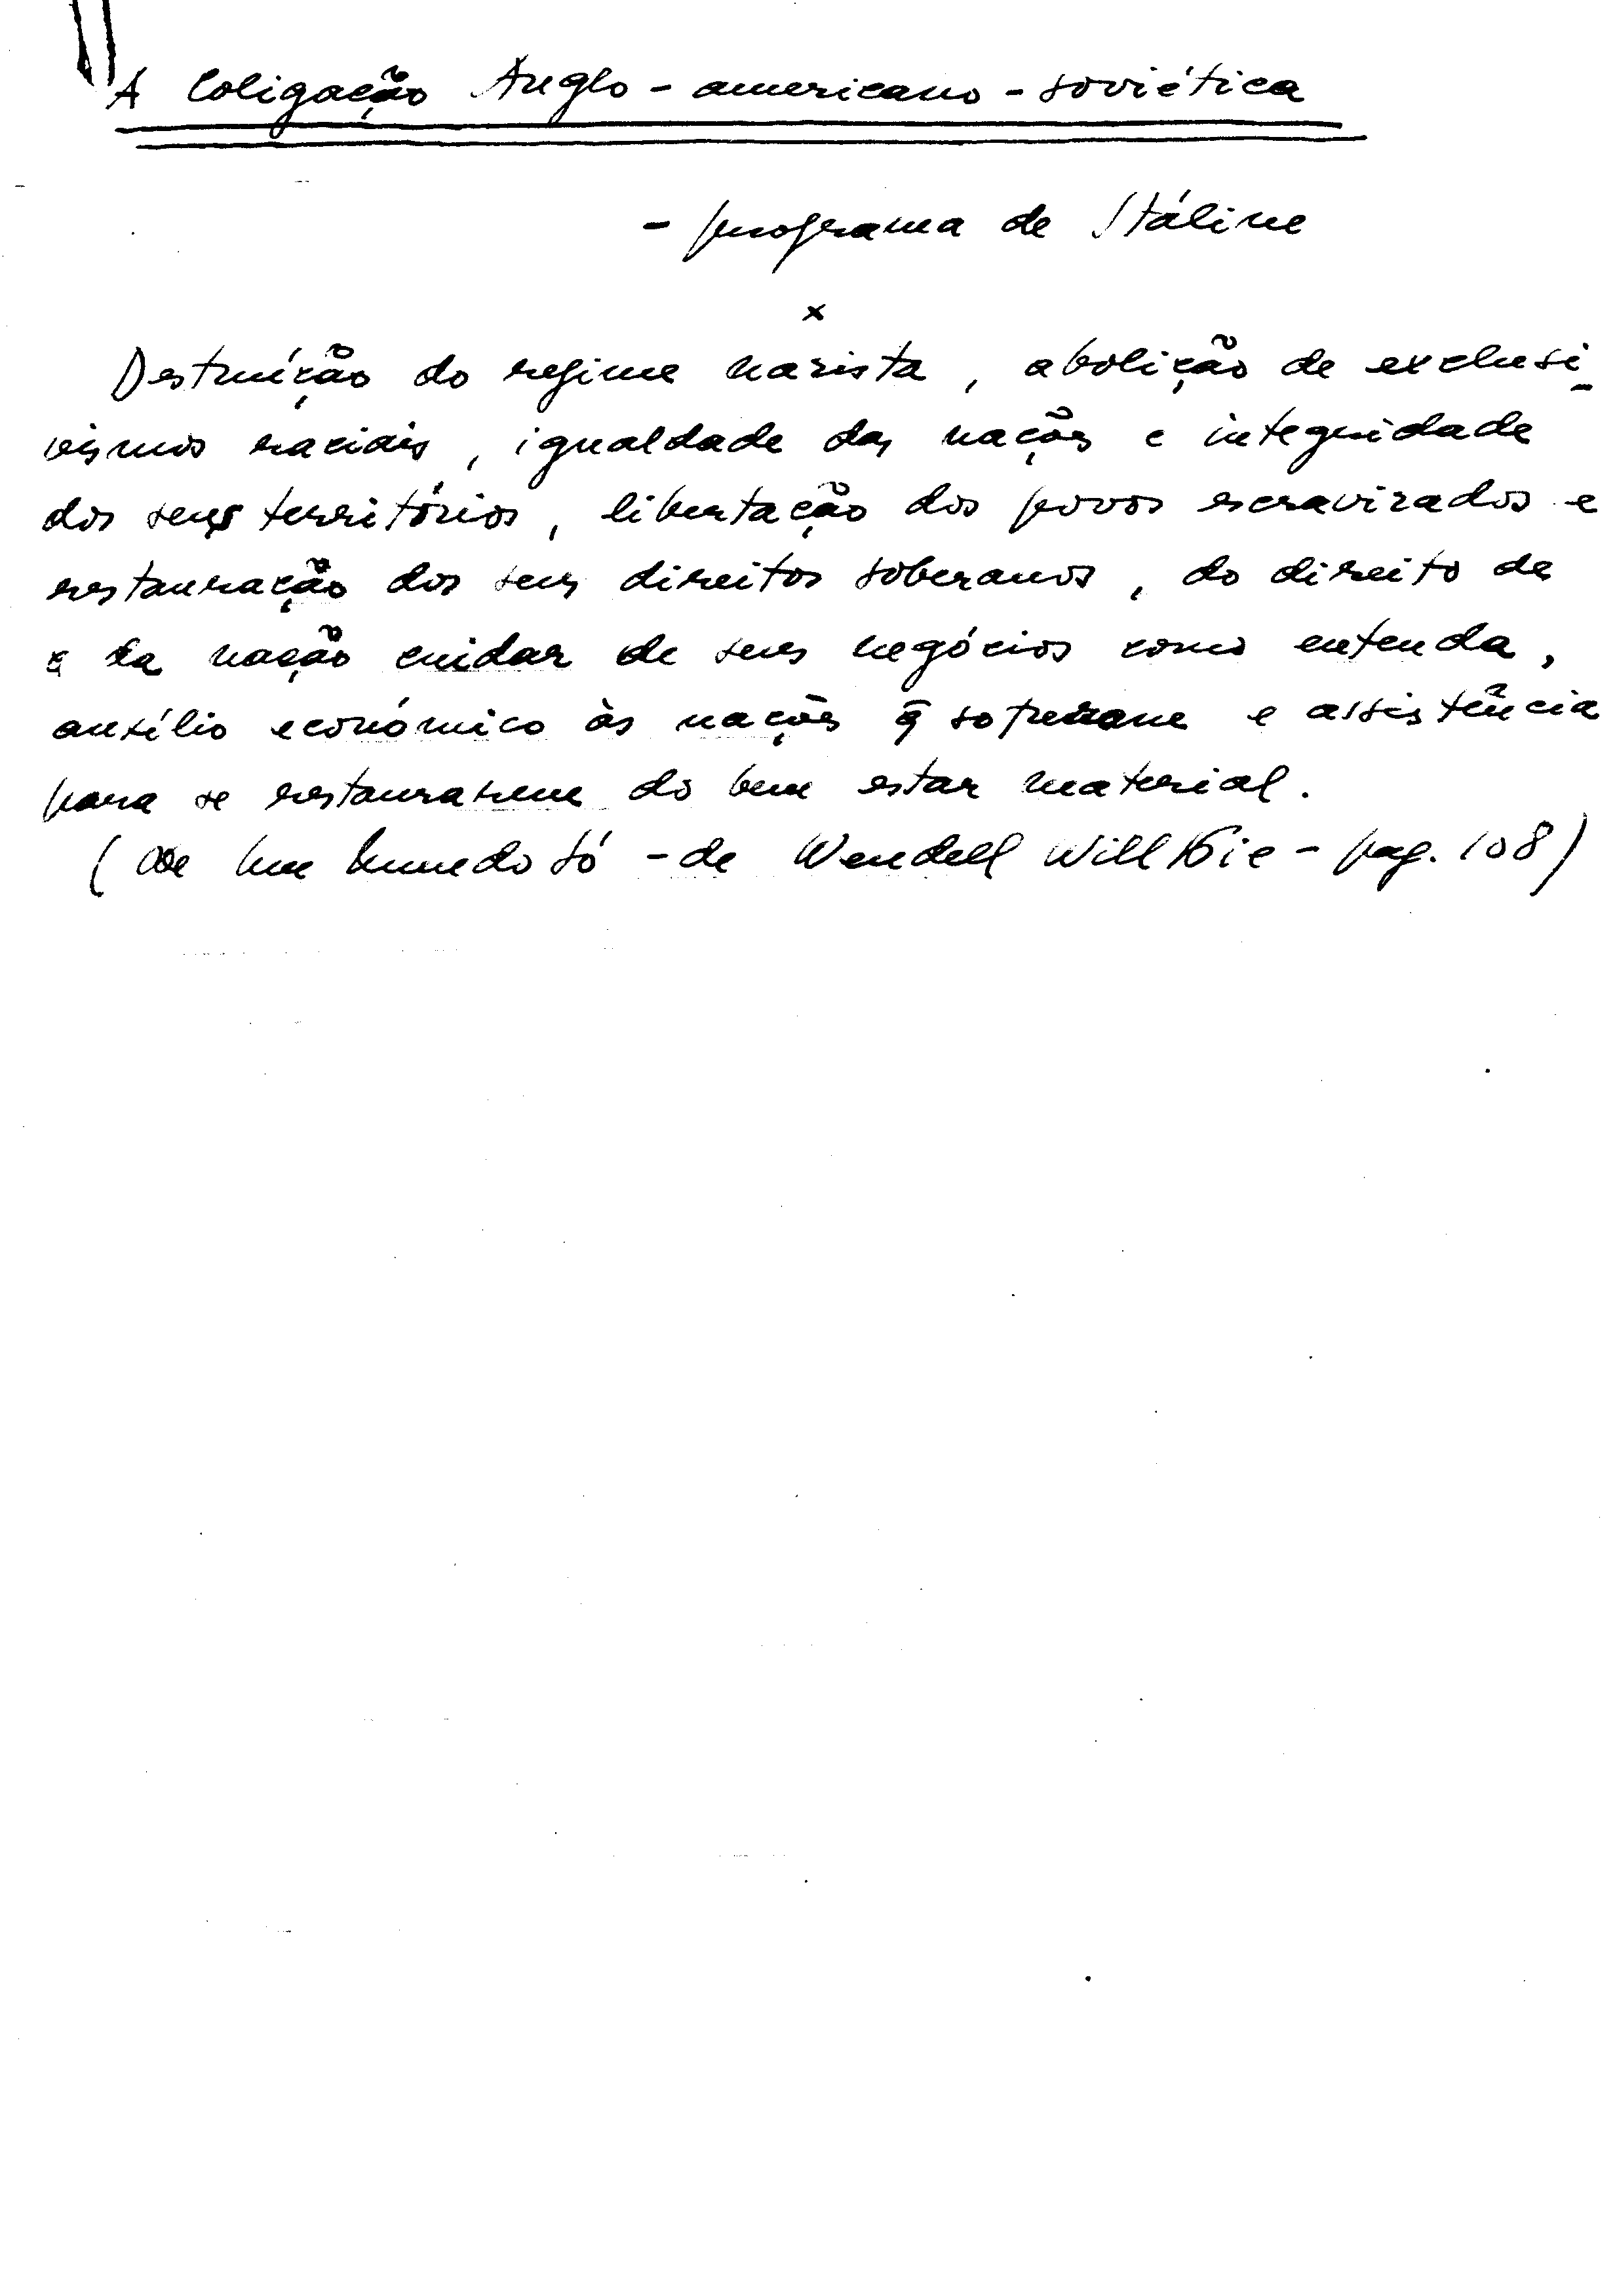 A Coligação Anglo-americano-soviética
- programa de Stáline
x
Destruição do regime nazista, abolição de exclusi-
vismos raciais, igualdade das nações e integridade
dos seus territórios, libertação dos povos escravizados e
restauração dos seus direitos soberanos, do direito de
c da nação cuidar de seus negócios como entenda,
auxílio económico às nações q̄ sofreram e assistência
para se restaurarem do bem estar material.
(de Um Mundo Só - de Wendell Willkie - pag. 108)